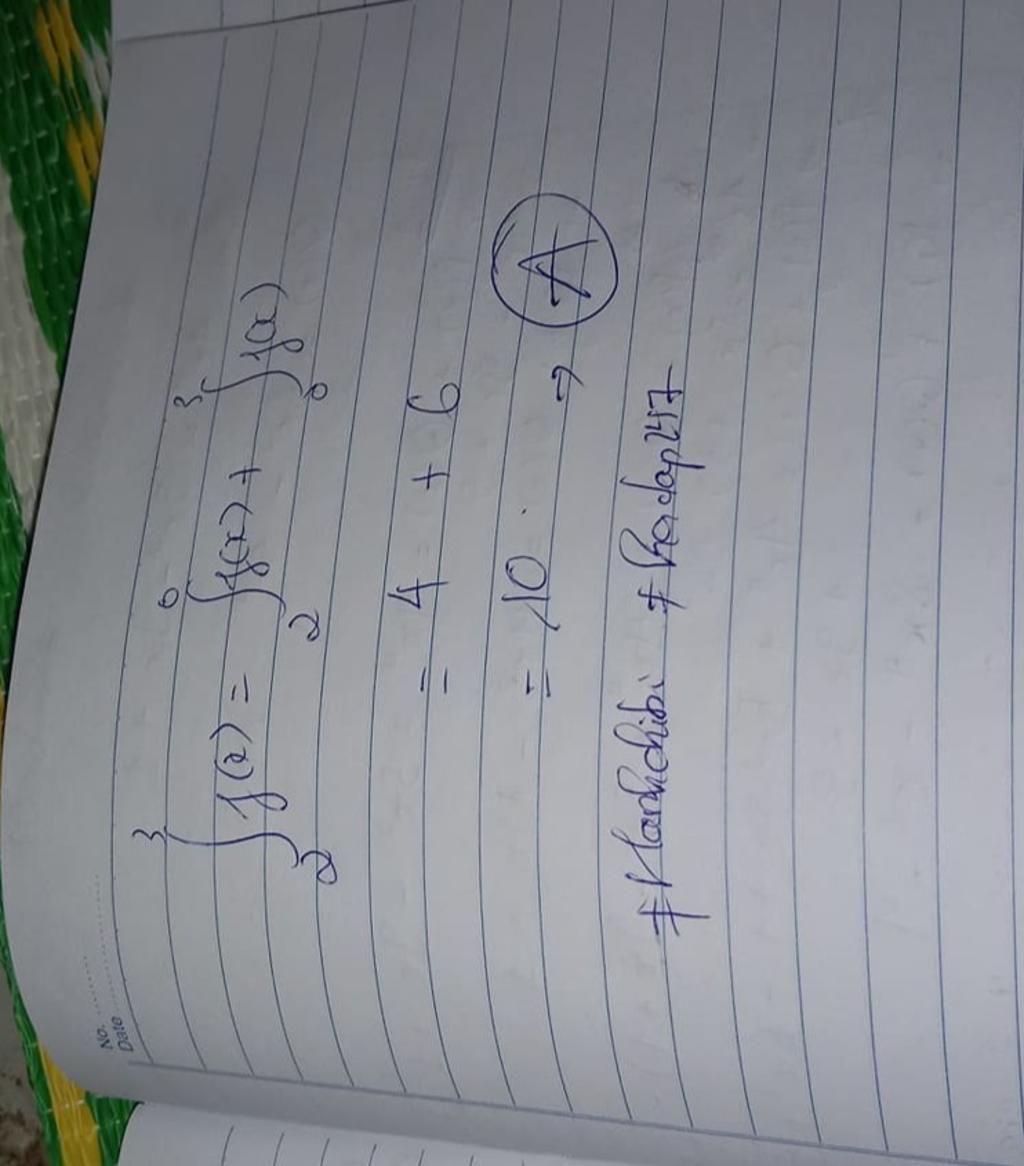 No. ..........
Date ..........
∫₂³ f(x) = ∫₂⁰ f(x) + ∫₀³ f(x)
= 4 + 6
= 10. → A
#Manhchibi #hoidap247